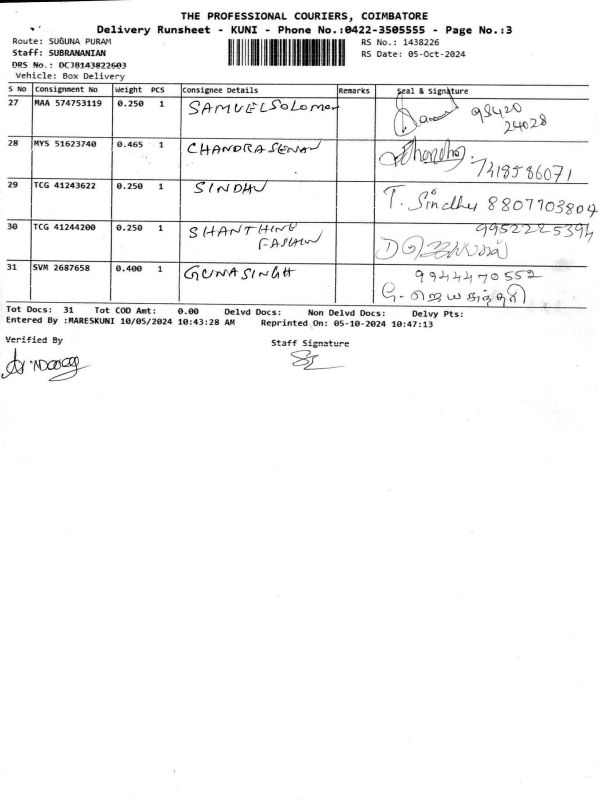 THE PROFESSIONAL COURIERS, COIMBATORE
Delivery Runsheet - KUNI - Phone No.:0422-3505555 - Page No.:3
Route: SUGUNA PURAM
RS No.: 1438226
Staff: SUBRANANIAN
RS Date: 05-Oct-2024
DRS No.: DCJB143822603
Vehicle: Box Delivery
S No Consignment No Weight PCS Consignee Details Remarks Seal & Signature
27 MAA 574753119 0.250 1 SAMUELSOLOMON 98420
24028
28 MYS 51623740 0.465 1 CHANDRASENAN
7418586071
29 TCG 41243622 0.250 1 SINDHU T. Sindhu 8807703804
30 TCG 41244200 0.250 1 SHANTHING 9952225394
FASHION
31 SVM 2687658 0.400 1 GUNASINGH 9944470552
Tot Docs: 31 Tot COD Amt: 0.00 Delvd Docs: Non Delvd Docs: Delvy Pts:
Entered By :MARESKUNI 10/05/2024 10:43:28 AM Reprinted On: 05-10-2024 10:47:13
Verified By
Staff Signature